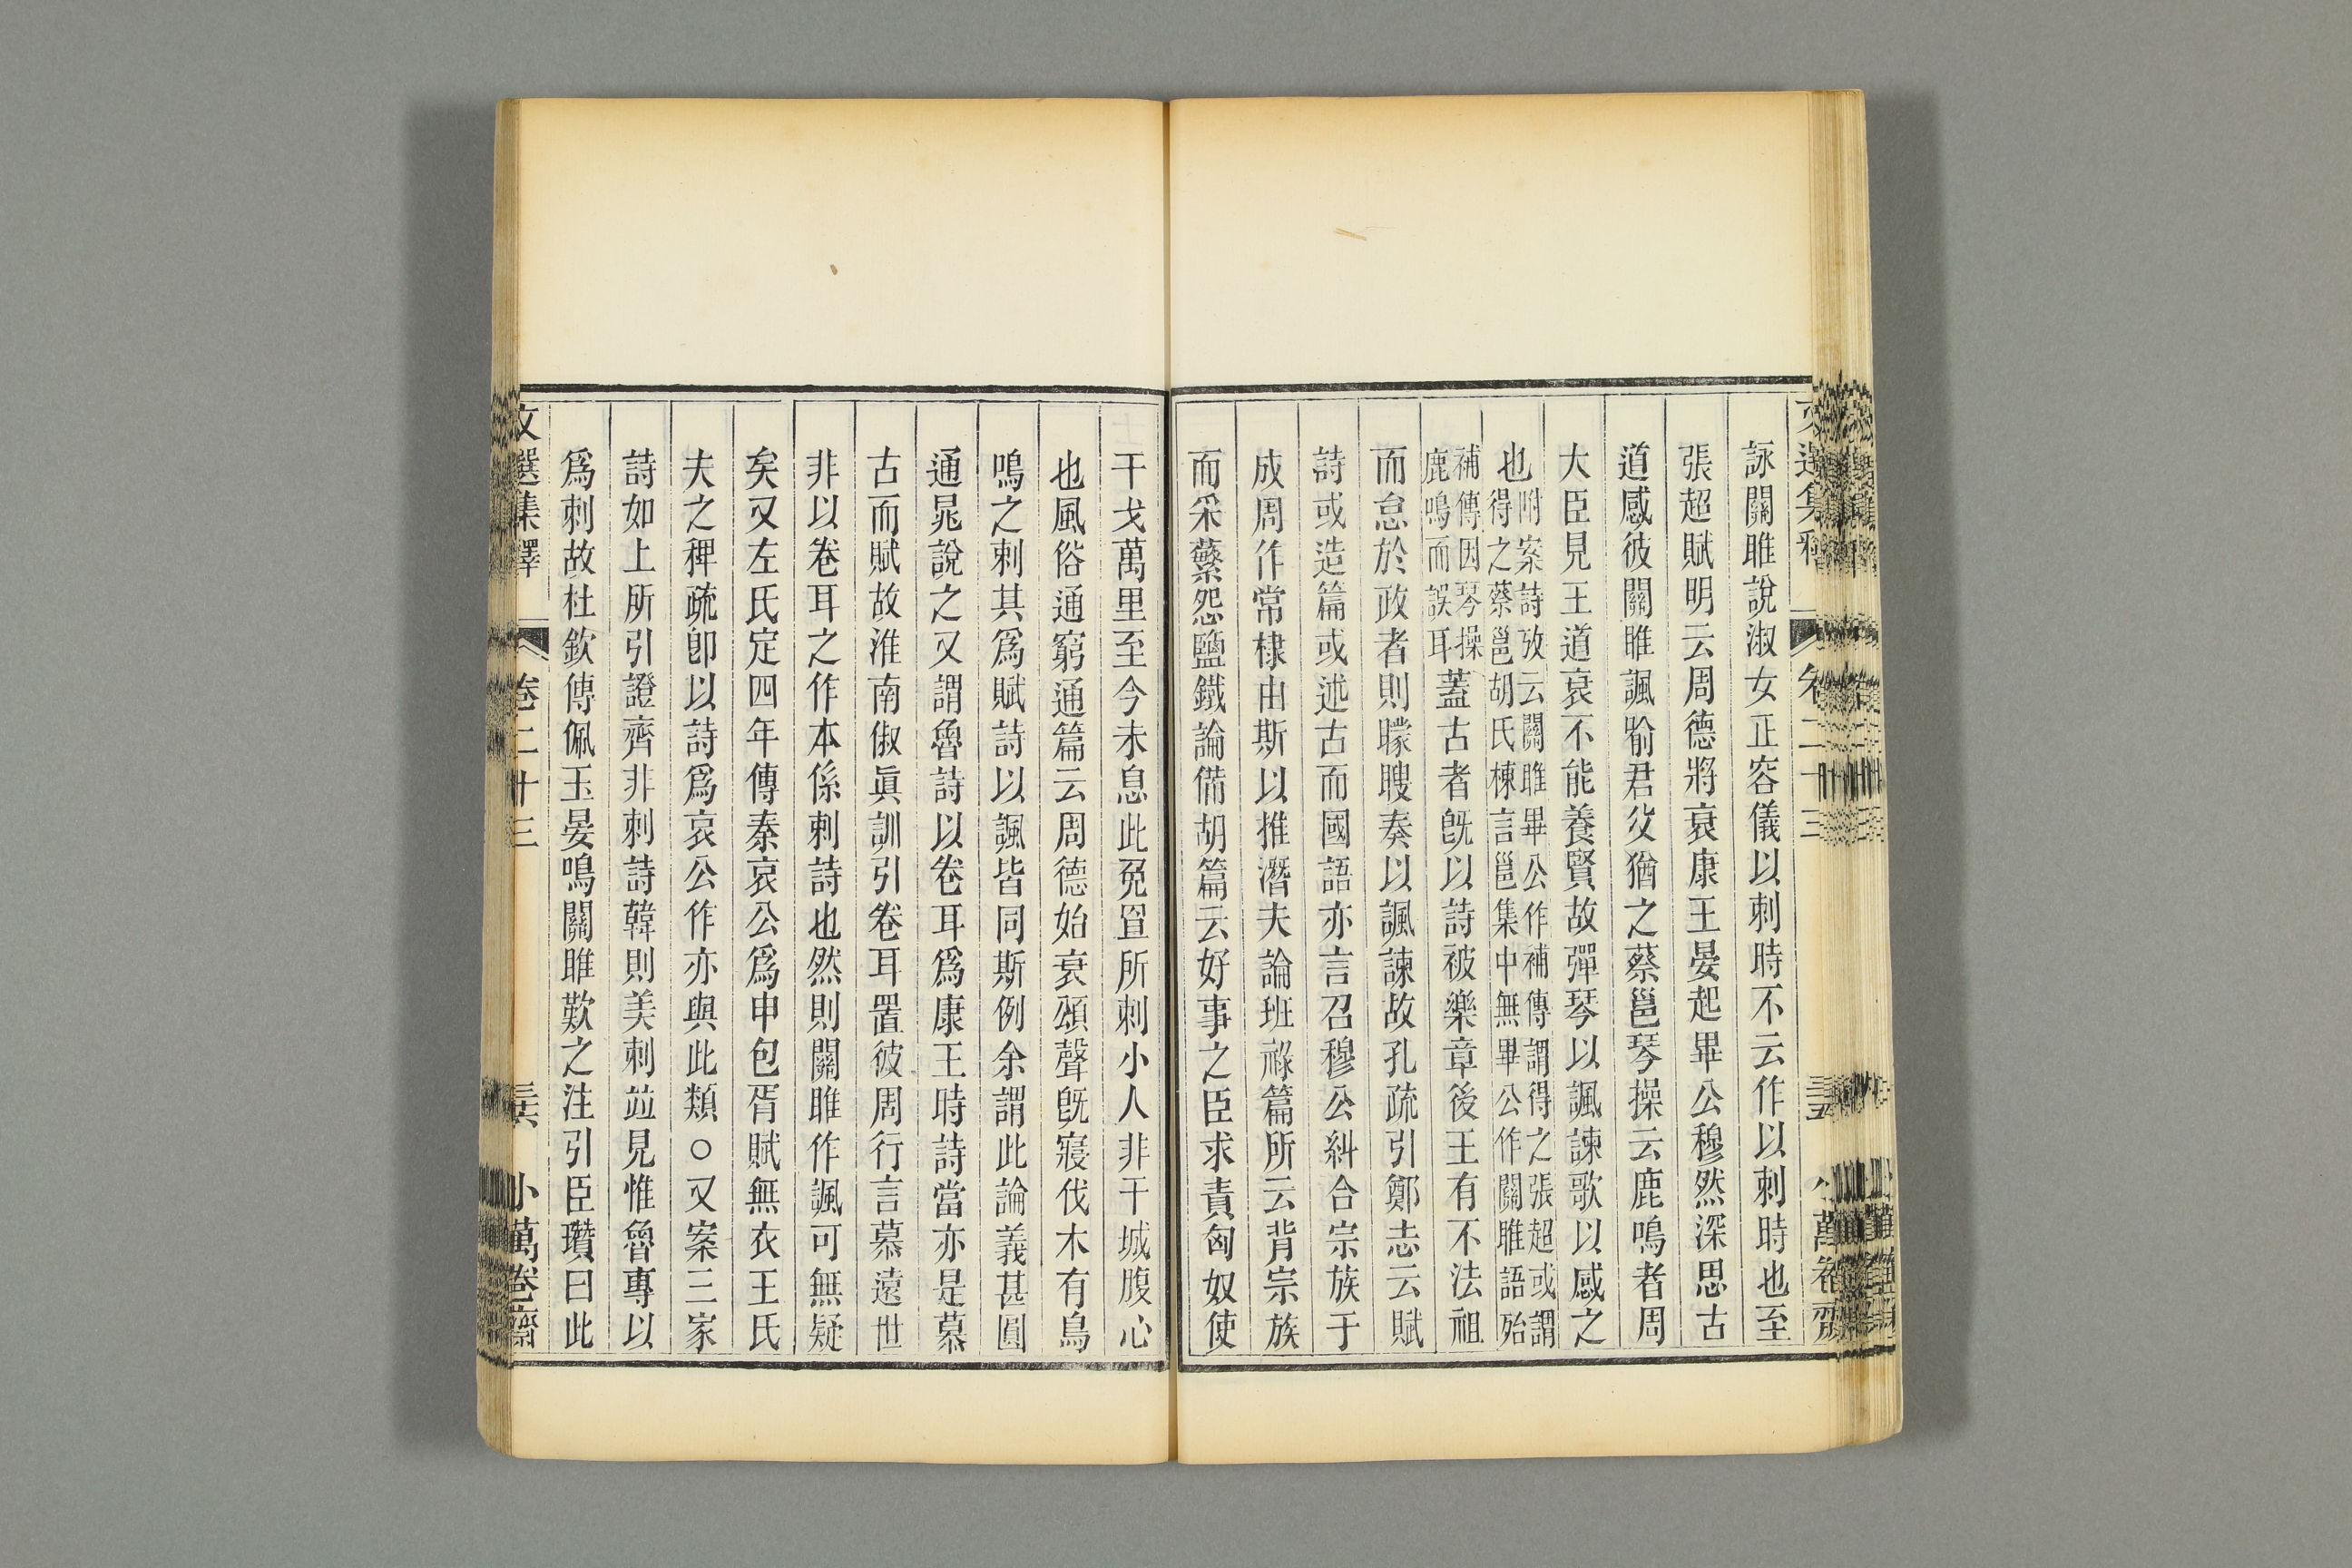 詠關雎說淑女正容儀以刺時不云作以刺時也至
張超賦明云周德將衰康王晏起畢公穆然深思古
道感彼關雎諷喻君父猶之蔡邕琴操云鹿鳴者周
大臣見王道衰不能養賢故彈琴以諷諫歌以感之
也
附案詩攷云關雎畢公作補傳謂得之張超或謂
得之蔡邕胡氏棟言邕集中無畢公作關雎語殆
補傳因琴操
鹿鳴而誤耳
蓋古者旣以詩被樂章後王有不法祖
而怠於政者則矇瞍奏以諷諫故孔疏引鄭志云賦
詩或造篇或述古而國語亦言召穆公糾合宗族于
成周作常棣由斯以推潛夫論班祿篇所云背宗族
而采蘩怨鹽鐵論備胡篇云好事之臣求責匈奴使
干戈萬里至今未息此兔罝所刺小人非干城腹心
也風俗通窮通篇云周德始衰頌聲旣寢伐木有鳥
鳴之刺其爲賦詩以諷皆同斯例余謂此論義甚圓
通晁說之又謂魯詩以卷耳爲康王時詩當亦是慕
古而賦故淮南俶眞訓引卷耳置彼周行言慕遠世
非以卷耳之作本係刺詩也然則關雎作諷可無疑
矣又左氏定四年傳秦哀公爲申包胥賦無衣王氏
夫之稗疏卽以詩爲哀公作亦與此類○又案三家
詩如上所引證齊非刺詩韓則美刺竝見惟魯專以
爲刺故杜欽傳佩玉晏鳴關雎歎之注引臣瓚曰此
文選集釋 卷二十三 三六 小萬卷齋